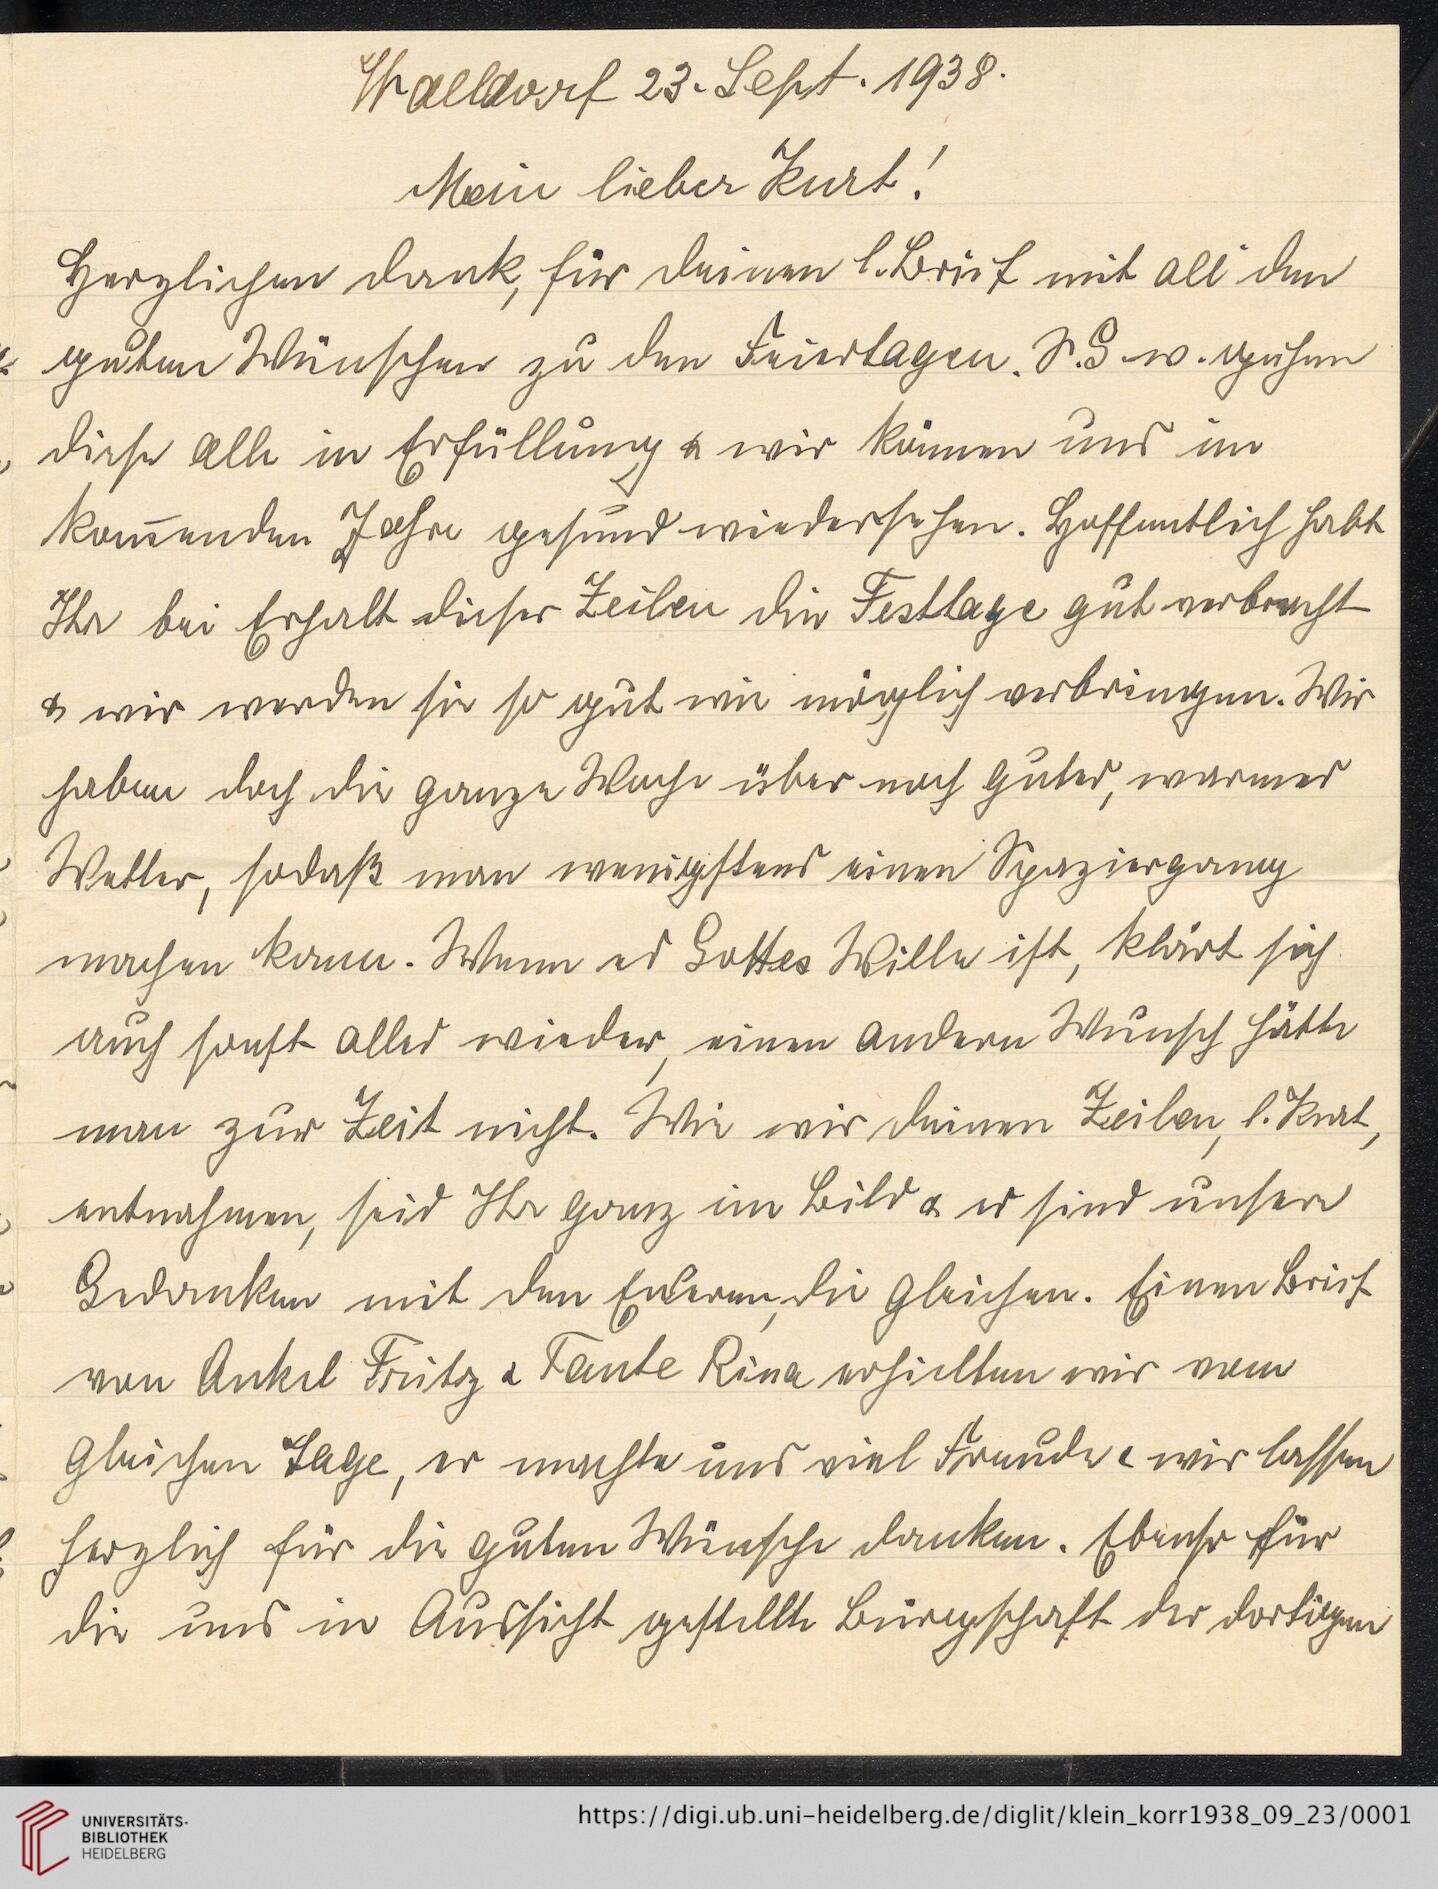 Walldorf 23. Sept. 1938.
Mein lieber Kurt!
Herzlichen Dank, für Deinen l. Brief mit all den
guten Wünschen zu den Feiertagen. S. G. w. gehen
diese alle in Erfüllung & wir können uns im
kom̅enden Jahre gesund wiedersehen. Hoffentlich habt
Ihr bei Erhalt dieser Zeilen die Festtage gut verbracht
& wir werden sie so gut wie möglich verbringen. Wir
haben doch die ganze Woche über noch gutes, warmes
Wetter, sodaß man wenigstens einen Spaziergang
machen kann. Wenn es Gottes Wille ist, klärt sich
auch sonst alles wieder, einen andern Wunsch hätte
man zur Zeit nicht. Wie wir Deinen Zeilen, l. Kurt,
entnahmen, seid Ihr ganz im Bild & es sind unsere
Gedanken mit den Eueren, die gleichen. Einen Brief
von Onkel Fritz & Tante Rina erhielten wir vom
gleichen Tage, er machte uns viel Freude & wir lassen
herzlich für die guten Wünsche danken. Ebenso für
die uns in Aussicht gestellte Bürgschaft der dortigen
UNIVERSITÄTS-
BIBLIOTHEK
HEIDELBERG
https://digi.ub.uni-heidelberg.de/diglit/klein_korr1938_09_23/0001